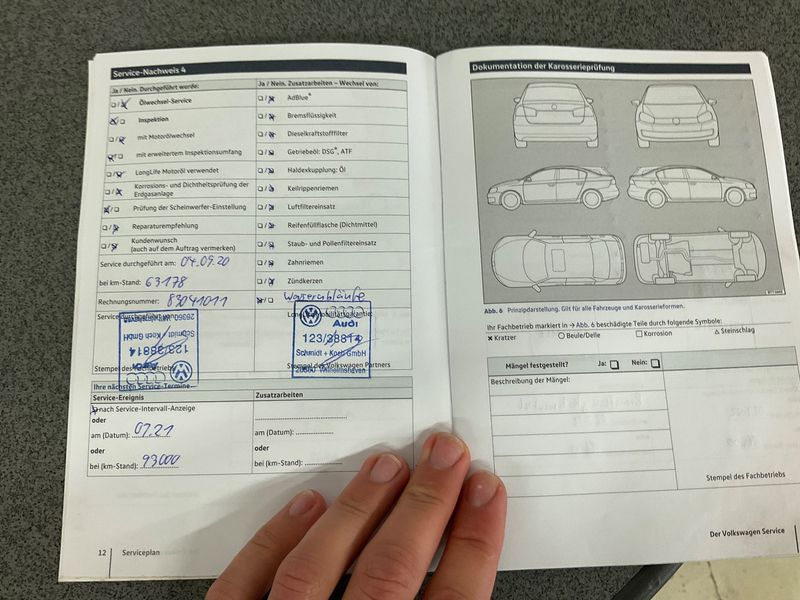 Service-Nachweis 4
Ja / Nein. Durchgeführt wurde:
Ölwechsel-Service
Inspektion
mit Motorölwechsel
mit erweitertem Inspektionsumfang
LongLife Motoröl verwendet
Korrosions- und Dichtheitsprüfung der
Erdgasanlage
Prüfung der Scheinwerfer-Einstellung
Reparaturempfehlung
Kundenwunsch
(auch auf dem Auftrag vermerken)
Service durchgeführt am: 04.09.20
bei km-Stand: 63178
Rechnungsnummer: 83041011
Schmidt + Koch GmbH
123/38814
Audi
Ja / Nein. Zusatzarbeiten – Wechsel von:
AdBlue®
Bremsflüssigkeit
Dieselkraftstofffilter
Getriebeöl: DSG®, ATF
Haldexkupplung: Öl
Keilrippenriemen
Luftfiltereinsatz
Reifenfüllflasche (Dichtmittel)
Staub- und Pollenfiltereinsatz
Zahnriemen
Zündkerzen
Wasserabläufe
Audi
123/38814
Schmidt + Koch GmbH
Stempel des Volkswagen Partners
Ihre nächsten Service-Termine
Service-Ereignis
nach Service-Intervall-Anzeige
oder
am (Datum): 07.21
oder
bei (km-Stand): 93000
Zusatzarbeiten
am (Datum):
oder
bei (km-Stand):
12 Serviceplan
Dokumentation der Karosserieprüfung
Abb. 6 Prinzipdarstellung. Gilt für alle Fahrzeuge und Karosserieformen.
Ihr Fachbetrieb markiert in → Abb. 6 beschädigte Teile durch folgende Symbole:
× Kratzer ○ Beule/Delle □ Korrosion △ Steinschlag
Mängel festgestellt? Ja: □ Nein: □
Beschreibung der Mängel:
Stempel des Fachbetriebs
Der Volkswagen Service